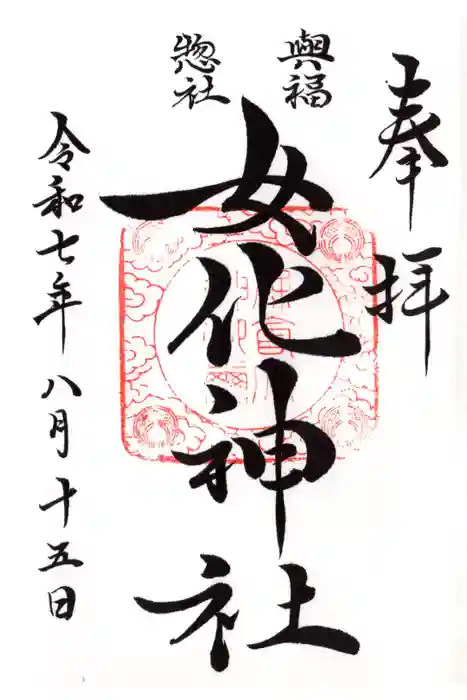 奉拝
興福
惣社
女化神社
令和七年八月十五日